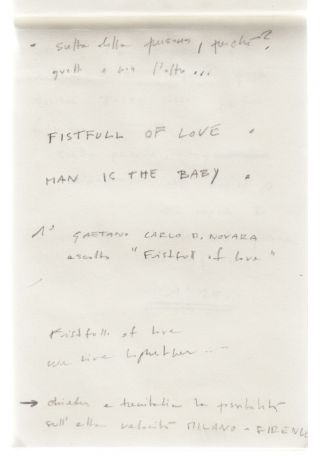 • scelta della persona, perché?
quella e non l'altra...
FISTFULL OF LOVE •
MAN IS THE BABY •
1° GAETANO CARLO D. NOVARA
ascolto "Fistfull of love"
Fistfull of love
we live together ...
→ chiedere a trenitalia la possibilità
sull'alta velocità MILANO - FIRENZE